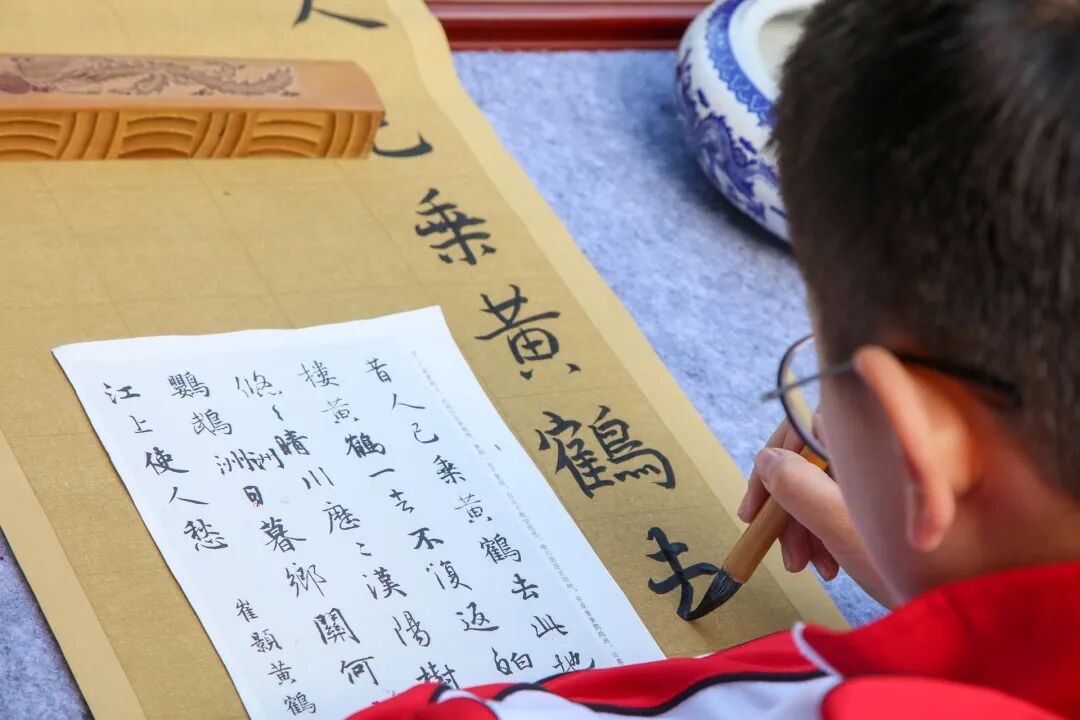 人已乘黄鶴去
昔人已乘黄鶴去此地
樓黄鶴一去不復返白
悠〻晴川歷〻漢陽樹
鸚鵡洲日暮鄉關何
江上使人愁
崔顥黄鶴